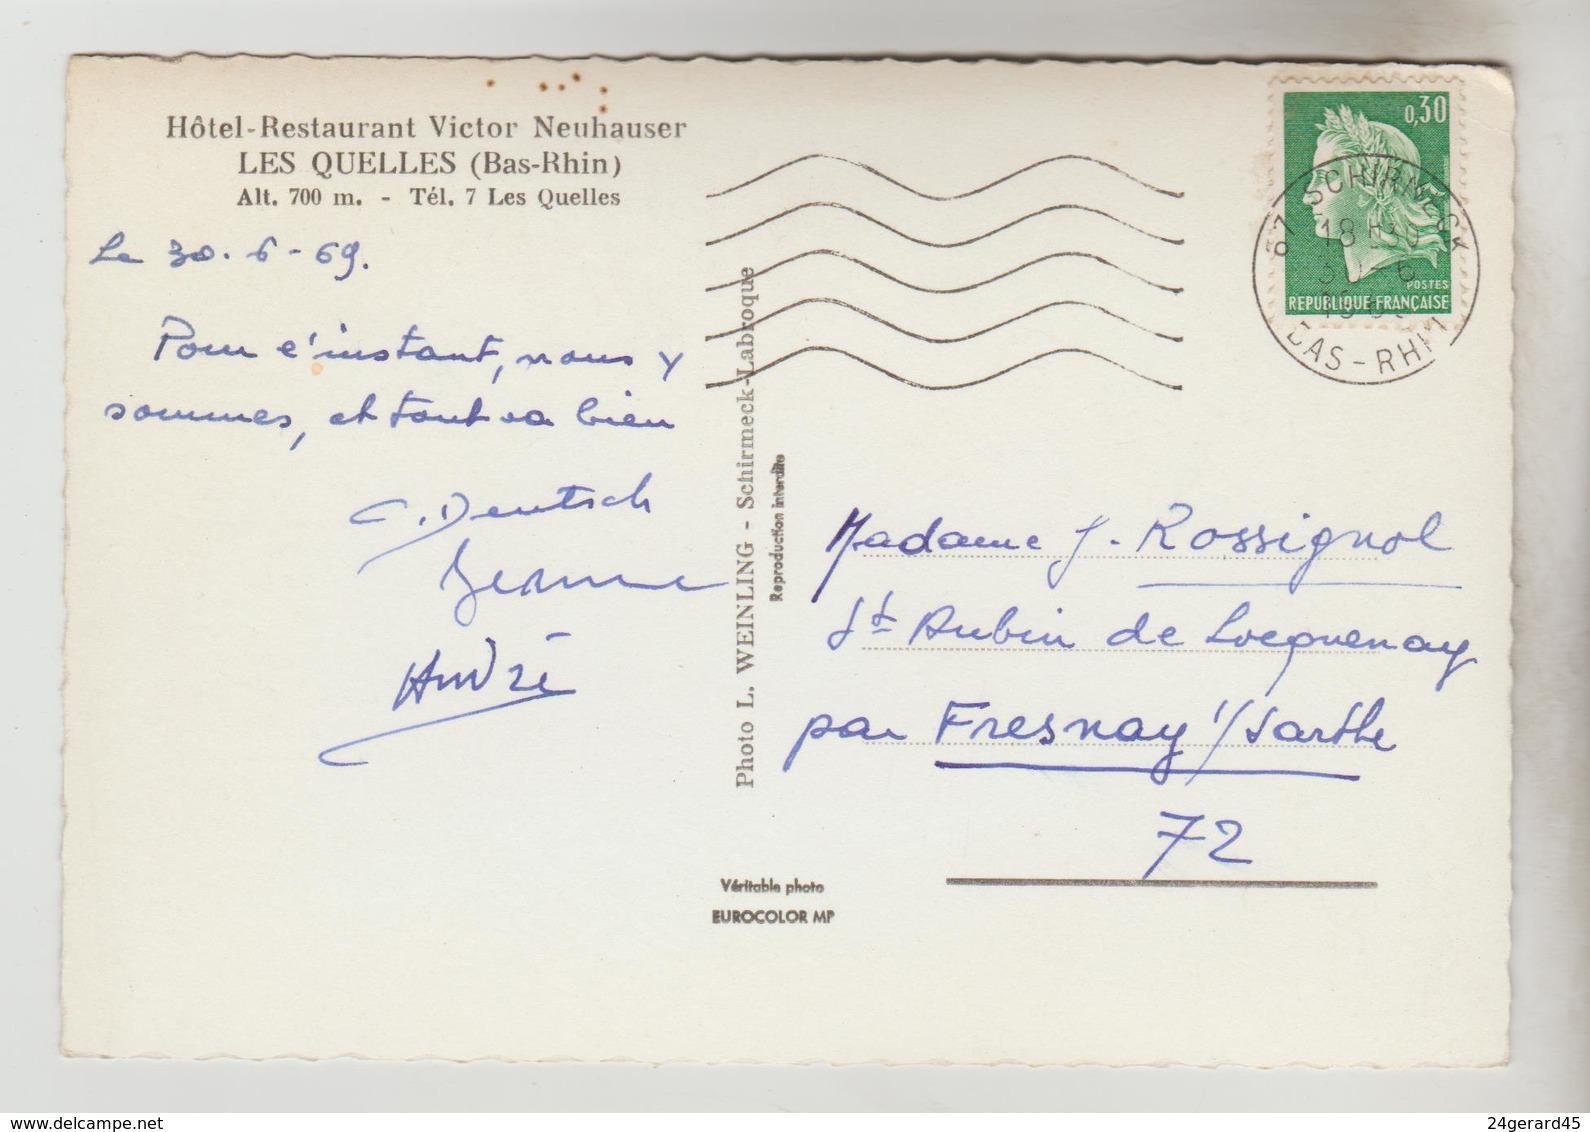 Hôtel-Restaurant Victor Neuhauser
LES QUELLES (Bas-Rhin)
Alt. 700 m. - Tél. 7 Les Quelles
Le 30-6-69.
Pour l'instant, nous y
sommes, et tout va bien
C. Deutsch
Jeanne
André
Photo L. WEINLING - Schirmeck-Labroque
Reproduction interdite
Véritable photo
EUROCOLOR MP
0,30
POSTES
REPUBLIQUE FRANÇAISE
67 SCHIRMECK
18 H
30-6
BAS-RHIN
Madame J. Rossignol
St Aubin de Locquenay
par Fresnay s/Sarthe
72
delcampe.net
24gerard45